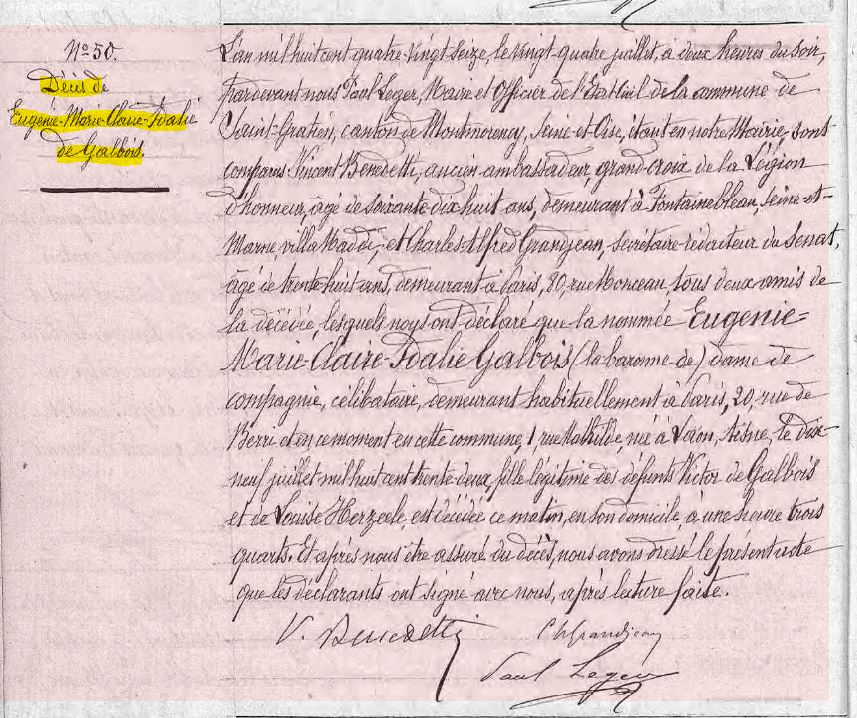 N° 50.
Décès de
Eugénie-Marie-Claire-Idalie
de Galbois.
L'an mil huit cent quatre-vingt-seize, le vingt-quatre juillet, à deux heures du soir,
pardevant nous Paul Leger, Maire et Officier de l'Etat Civil de la commune de
Saint-Gratien, canton de Montmorency, Seine-et-Oise, étant en notre Mairie, sont
comparus: Vincent Benedetti, ancien ambassadeur, grand-croix de la Légion
d'honneur, âgé de soixante dix huit ans, demeurant à Fontainebleau, seine-et-
Marne, villa et Charles Alfred Grandjean, secrétaire-rédacteur du Senat,
âgé de trente-huit ans, demeurant à Paris, 80, rue Monceau, tous deux amis de
la décédée, lesquels nous ont déclaré que la nommée Eugénie-
Marie-Claire-Idalie Galbois (la baronne de) dame de
compagnie, célibataire, demeurant habituellement à Paris, 20, rue de
Berri et en ce moment en cette commune, 1, rue Mathilde, née à Laon, Aisne, le dix-
neuf juillet mil huit cent trente-deux, fille légitime des défunts Victor de Galbois
et de Louise Herzeele, est décédée ce matin, en son domicile, à une heure trois
quarts. Et après nous être assuré du décès, nous avons dressé le présent acte
que les déclarants ont signé avec nous, après lecture faite.
V. Benedetti Ch Grandjean
Paul Leger